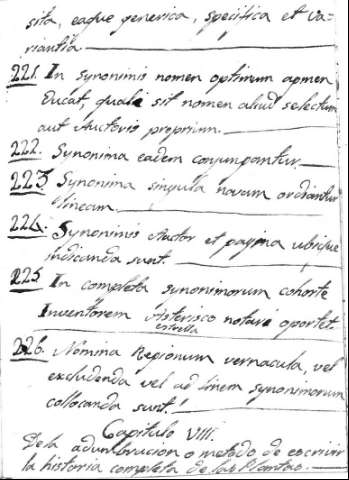 sita, eaque generica, specifica et va=
riantia.
221. In synonimis nomen optimum agmen
ducat, quale sit nomen aliud selectum
aut Auctoris proprium.
222. Synonima eadem conjungantur.
223. Synonima singula novam ordiantur
lineam.
224. Synonimis Auctor et pagina ubique
indicanda sunt.
225. In completa synonimorum cohorte
Inventorem Asterisco notari oportet.
estrella
226. Nomina Regionum vernacula, vel
excludenda vel ad finem synonimorum
collocanda sunt.
Capitulo VIII.
De la adumbracion o metodo de escrivir
la historia completa de las Plantas.